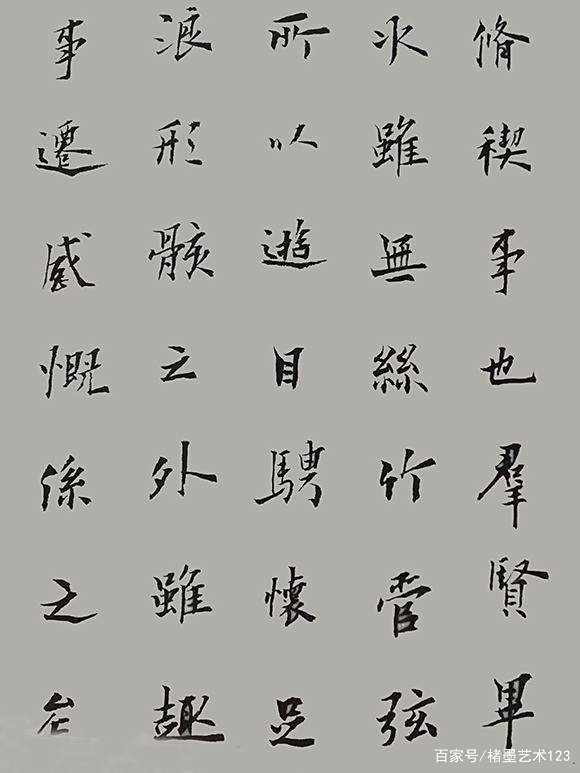 脩稧事也羣賢畢
次雖無絲竹管弦
所以遊目騁懷足
浪形骸之外雖趣
事遷感慨係之矣
百家号/楮墨艺术123